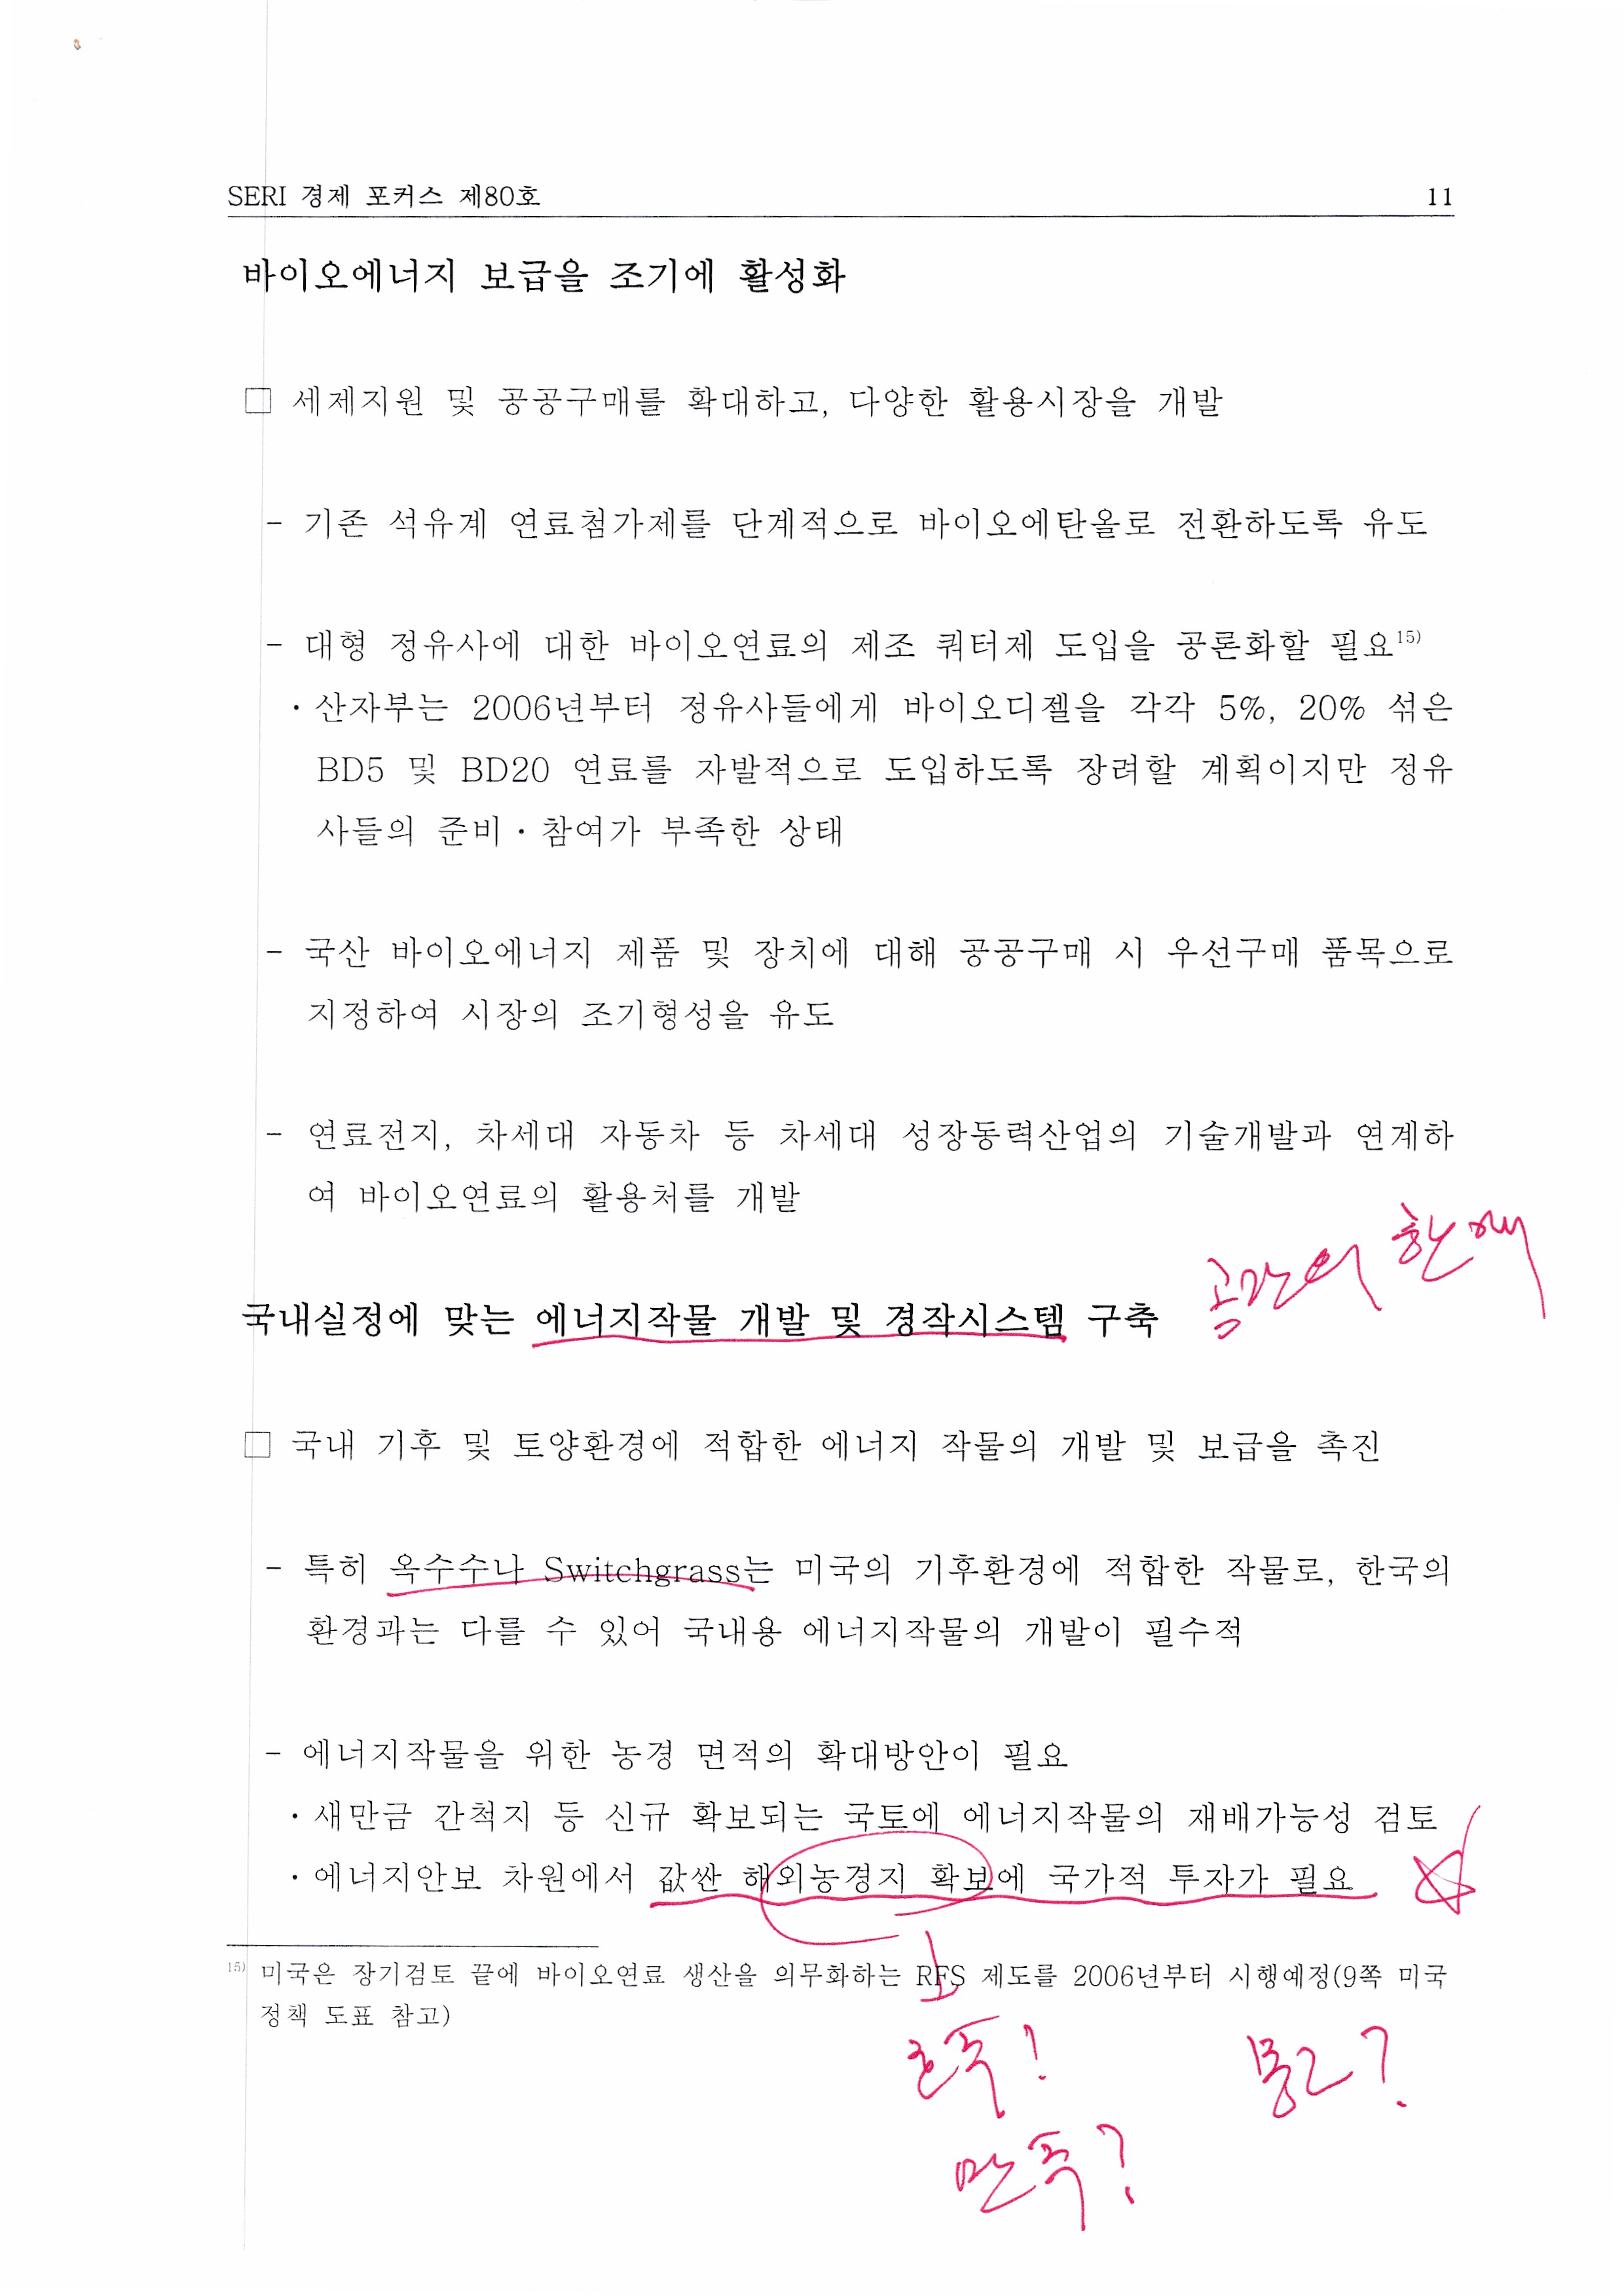 SERI 경제 포커스 제80호 11
바이오에너지 보급을 조기에 활성화
□ 세제지원 및 공공구매를 확대하고, 다양한 활용시장을 개발
- 기존 석유계 연료첨가제를 단계적으로 바이오에탄올로 전환하도록 유도
- 대형 정유사에 대한 바이오연료의 제조 쿼터제 도입을 공론화할 필요15)
· 산자부는 2006년부터 정유사들에게 바이오디젤을 각각 5%, 20% 섞은
BD5 및 BD20 연료를 자발적으로 도입하도록 장려할 계획이지만 정유
사들의 준비·참여가 부족한 상태
- 국산 바이오에너지 제품 및 장치에 대해 공공구매 시 우선구매 품목으로
지정하여 시장의 조기형성을 유도
- 연료전지, 차세대 자동차 등 차세대 성장동력산업의 기술개발과 연계하
여 바이오연료의 활용처를 개발
공간의
국내실정에 맞는 에너지작물 개발 및 경작시스템 구축
□ 국내 기후 및 토양환경에 적합한 에너지 작물의 개발 및 보급을 촉진
- 특히 옥수수나 Switchgrass는 미국의 기후환경에 적합한 작물로, 한국의
환경과는 다를 수 있어 국내용 에너지작물의 개발이 필수적
- 에너지작물을 위한 농경 면적의 확대방안이 필요
· 새만금 간척지 등 신규 확보되는 국토에 에너지작물의 재배가능성 검토
· 에너지안보 차원에서 값싼 해외농경지 확보에 국가적 투자가 필요
15) 미국은 장기검토 끝에 바이오연료 생산을 의무화하는 RFS 제도를 2006년부터 시행예정(9쪽 미국
정책 도표 참고)